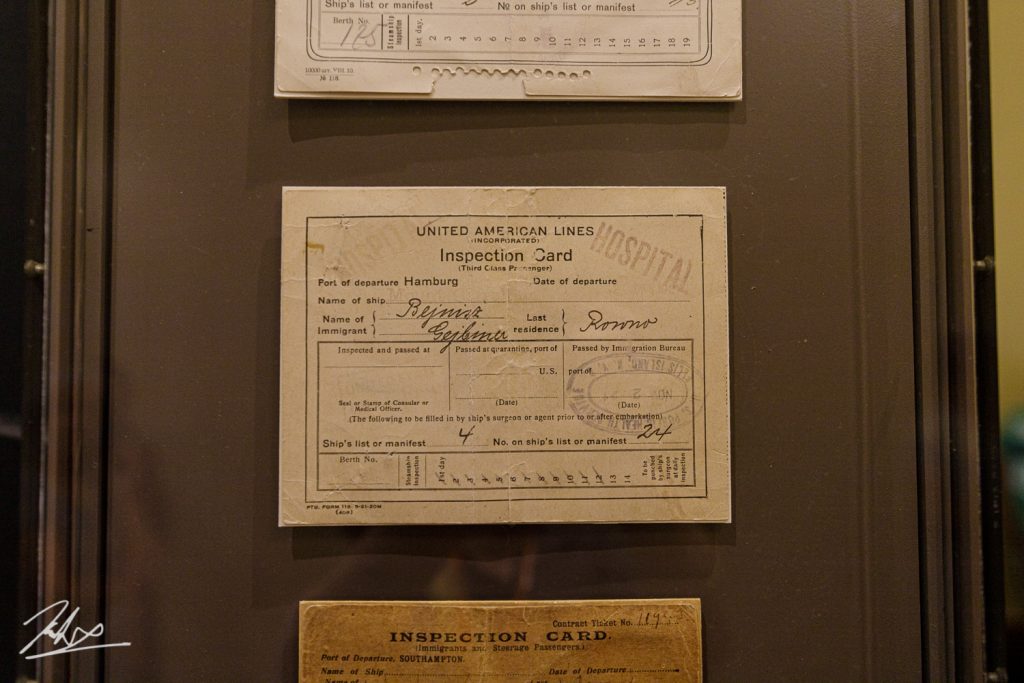 Ship's list or manifest No on ship's list or manifest
Berth No. 175 Steamship inspection 1st day. 2 3 4 5 6 7 8 9 10 11 12 13 14 15 16 17 18 19
10000 VIII. 10.
№ 118.
HOSPITAL HOSPITAL
UNITED AMERICAN LINES
(INCORPORATED)
Inspection Card
(Third Class Passenger)
Port of departure Hamburg Date of departure
Name of ship
Name of Immigrant Bejnisz Gejbiner Last residence Rowno
Inspected and passed at Passed at quarantine, port of Passed by Immigration Bureau
U.S. port of
ELLIS ISLAND, N.Y.
Seal or Stamp of Consular or Medical Officer. (Date) (Date)
(The following to be filled in by ship's surgeon or agent prior to or after embarkation)
Ship's list or manifest 4 No. on ship's list or manifest 24
Berth No. Steamship inspection 1st day 2 3 4 5 6 7 8 9 10 11 12 13 14 To be punched by ship's surgeon at daily inspection
PTG. FORM 113. 5-21-20M
Contract Ticket No.
INSPECTION CARD.
(Immigrants and Steerage Passengers.)
Port of Departure, SOUTHAMPTON.
Name of Ship Date of Departure